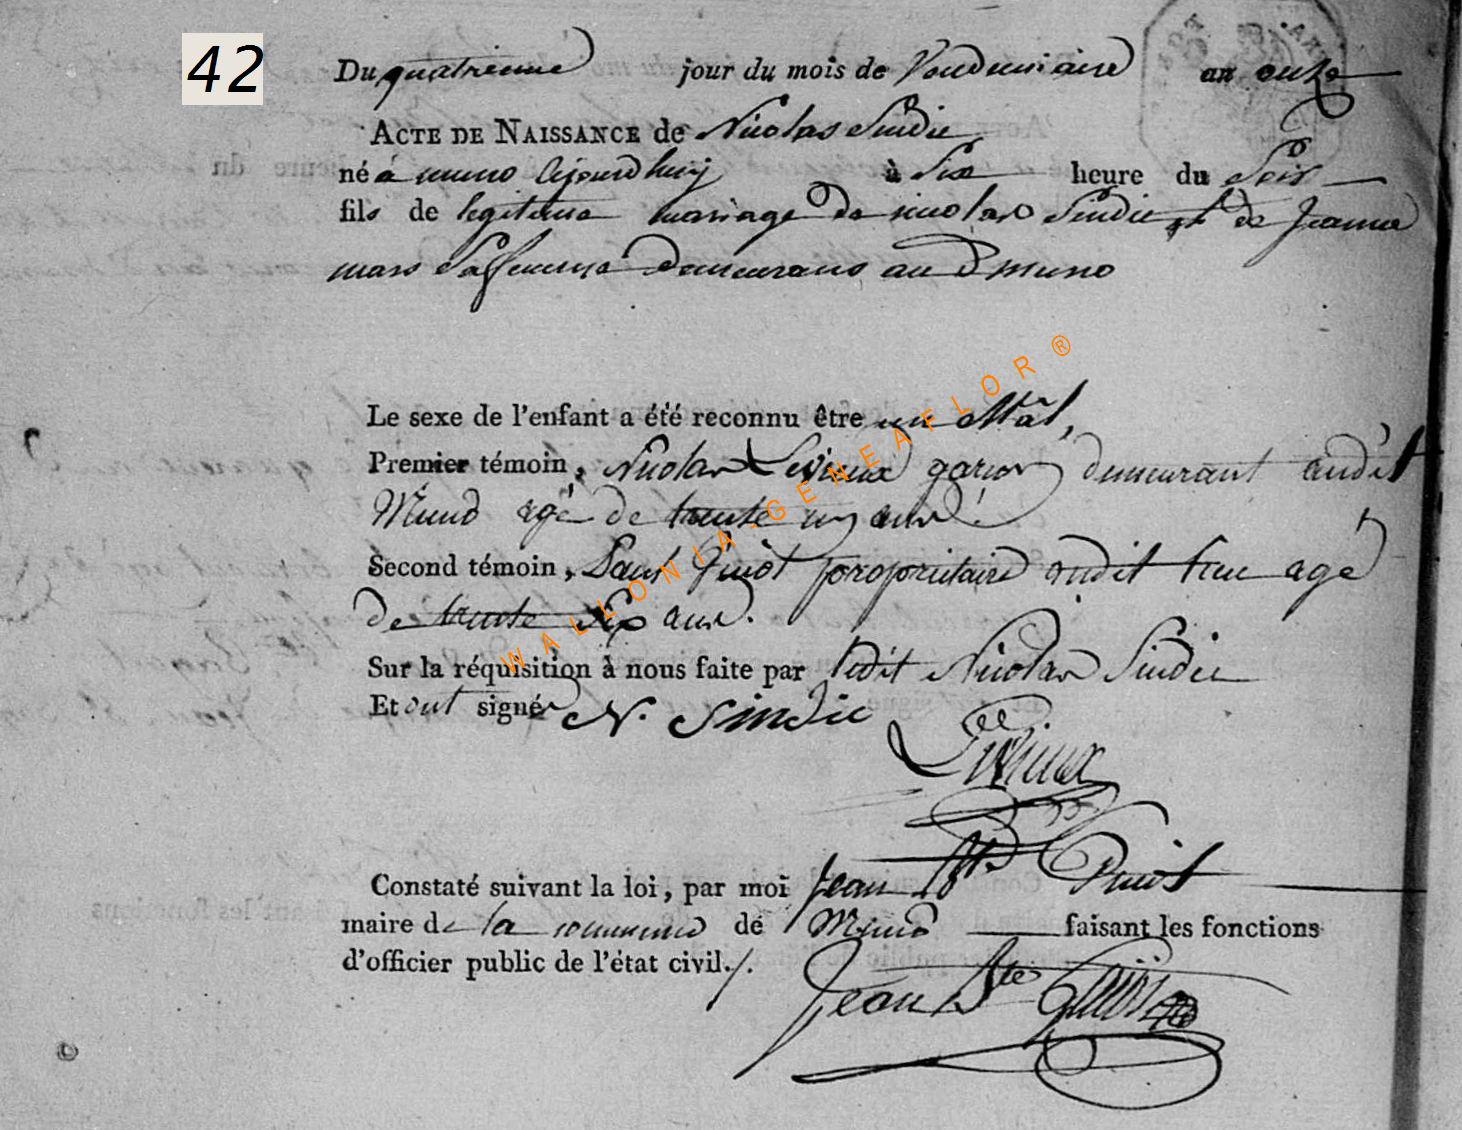 42
Du quatrieme jour du mois de Vendemiaire an onze
ACTE DE NAISSANCE de Nicolas Sindic
né à muno aujourd huy à Six heure du Soir
fils de legitime mariage de nicolas Sindic et de Jeanne
mars Sa femme demeurans au d muno
Le sexe de l'enfant a été reconnu être un Mâl,
Premier témoin, Nicolas Levieux garçon demeurant audit
Muno agé de trente un ans
Second témoin, propriétaire audit lieu agé
de trente Six ans.
Sur la réquisition à nous faite par ledit Nicolas Sindic
Et ont signé N. Sindic
Levieux
Constaté suivant la loi, par moi Jean Bte
maire de la commune de Muno faisant les fonctions
d'officier public de l'état civil./.
Jean Bte
WALLONIA-GENEAFLOR ®